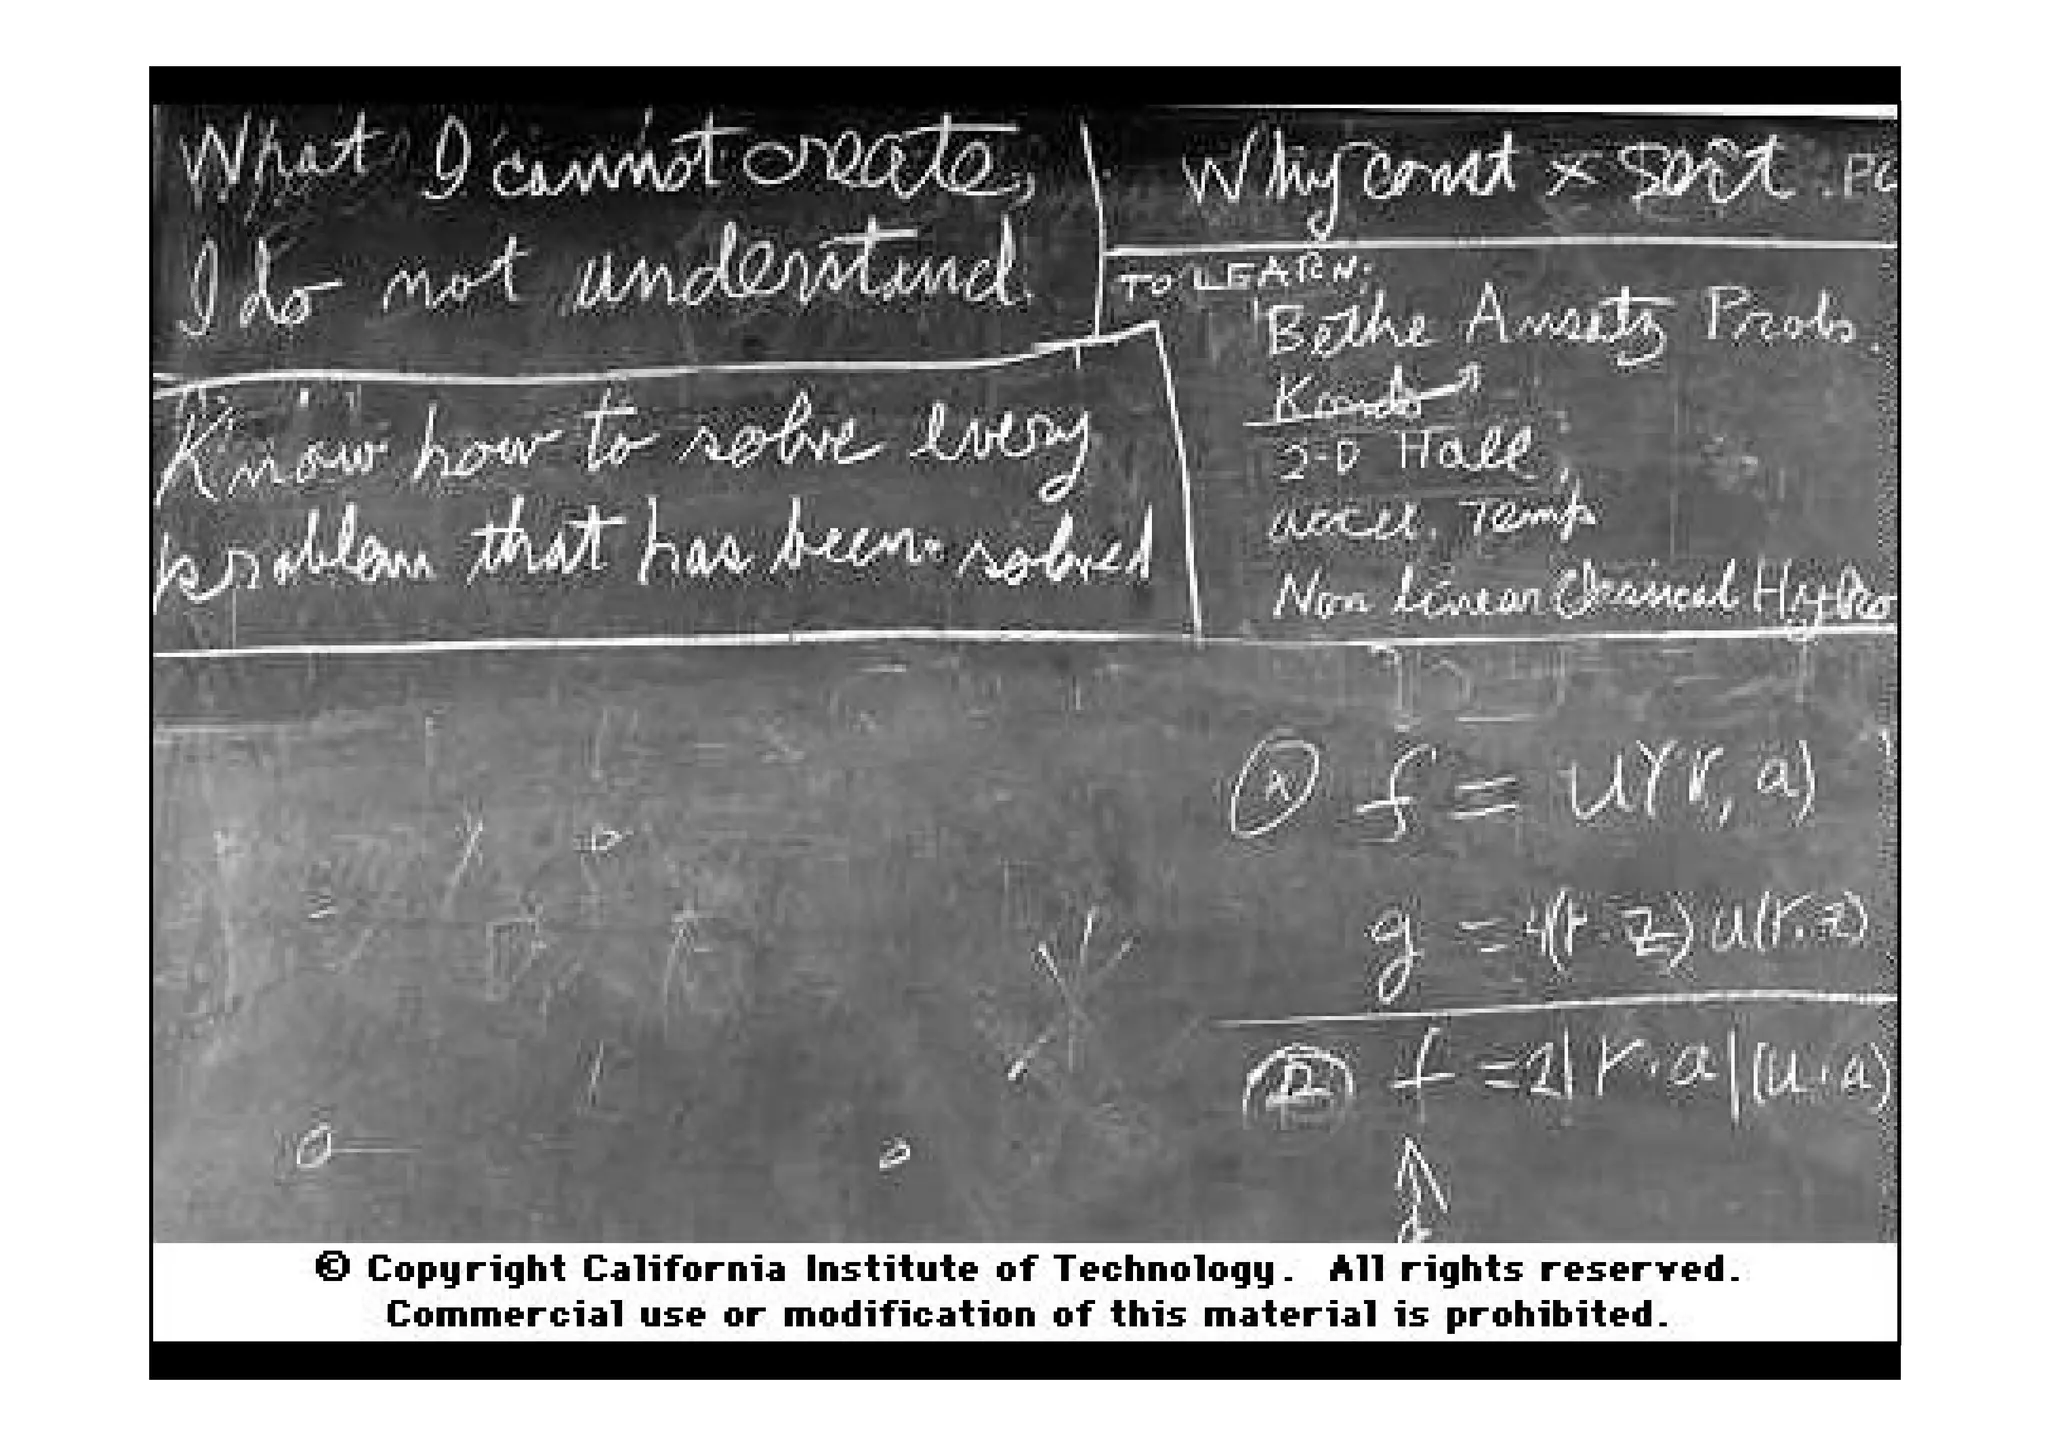 What I cannot create,
I do not understand.
Know how to solve every
problem that has been solved
Why const × sort . PO
TO LEARN:
Bethe Ansatz Probs.
Kondo
2-D Hall
accel. Temp
Non Linear Classical Hydro
f = U(r, a)
g = 4(r·z) u(r.z)
f = 2|r.a|(u.a)
© Copyright California Institute of Technology. All rights reserved.
Commercial use or modification of this material is prohibited.